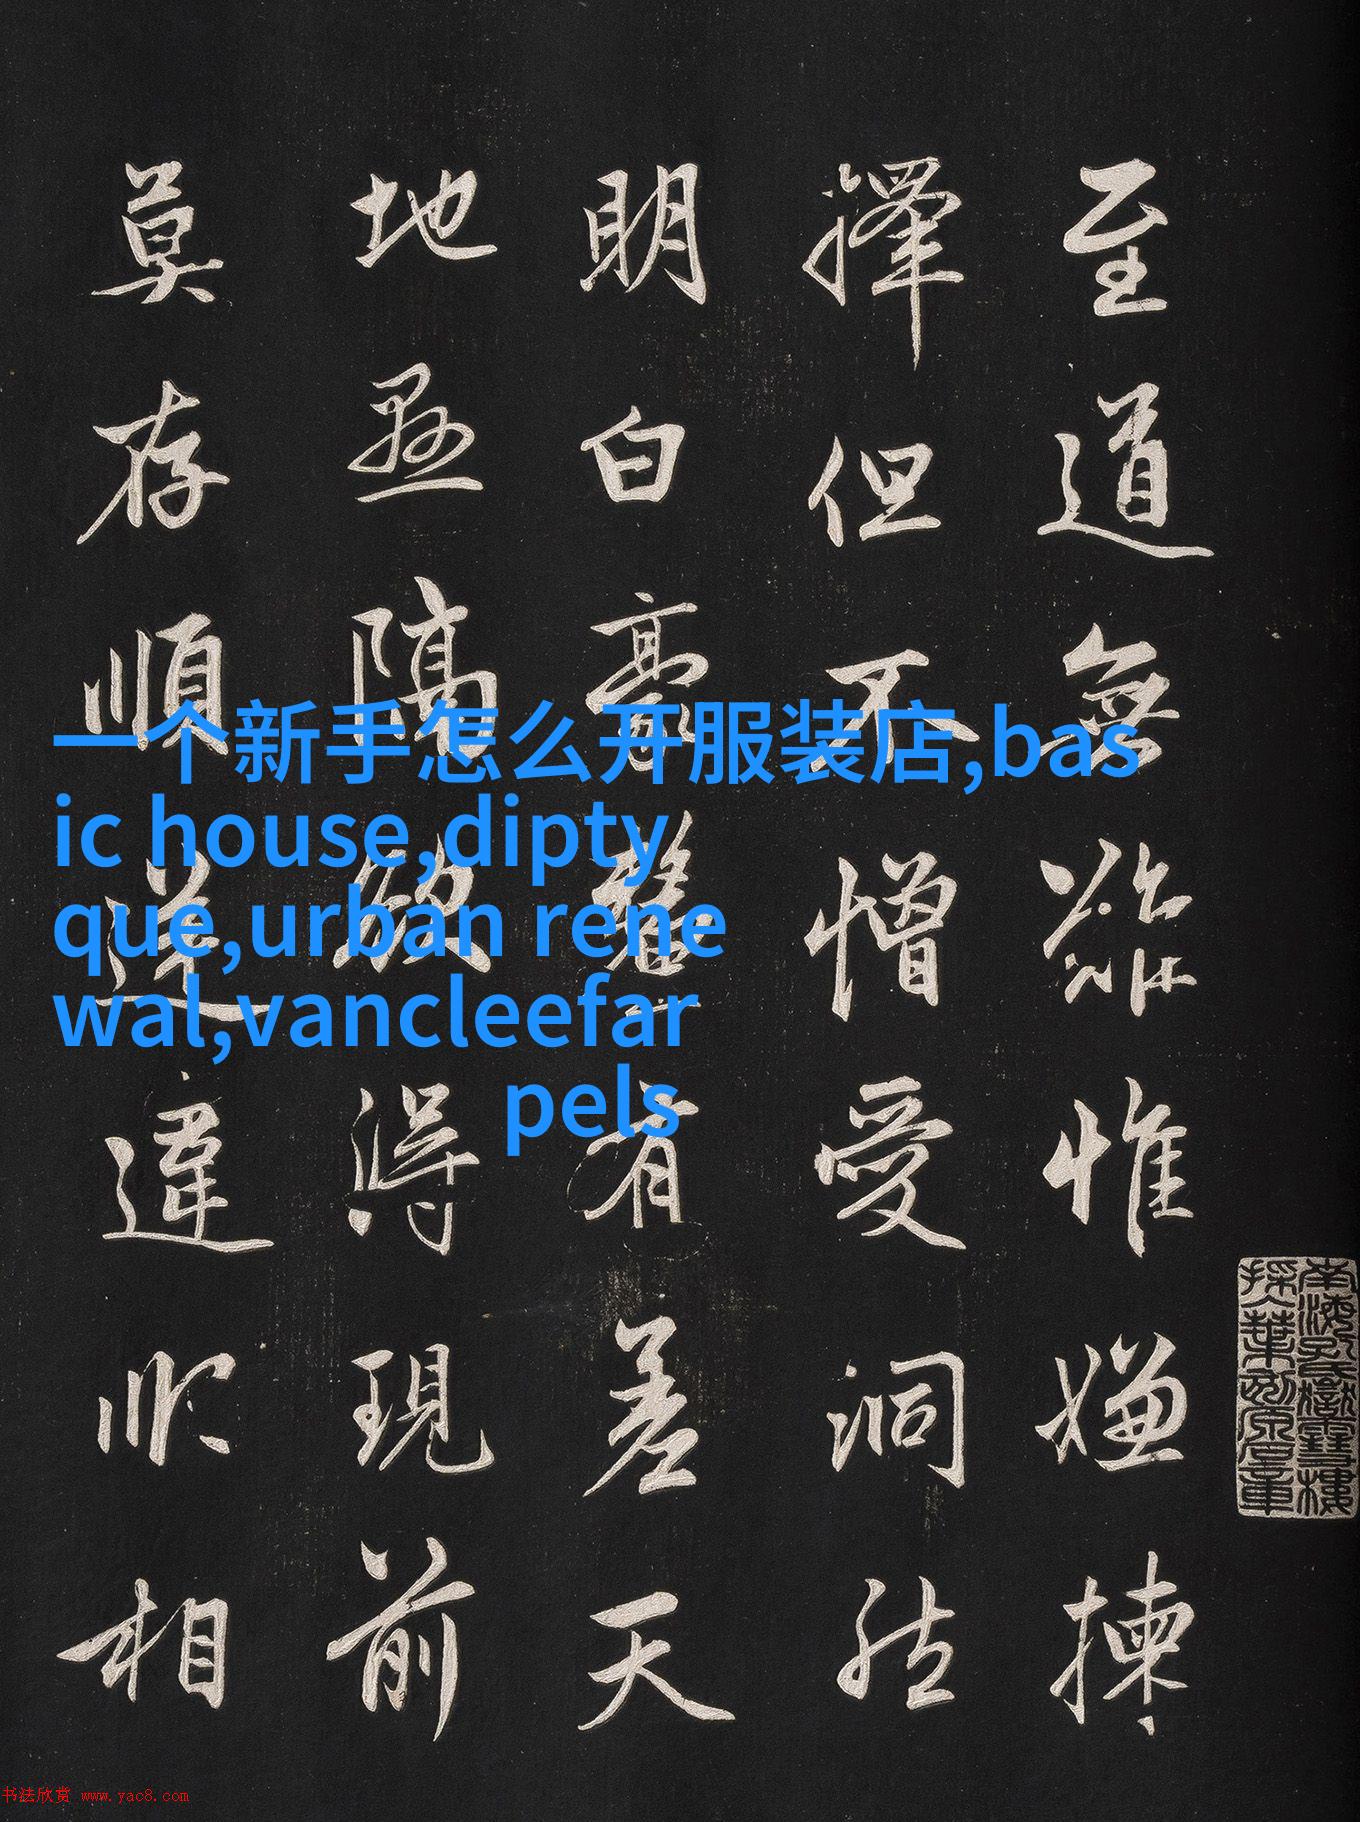 至道無難惟嫌揀
擇但不憎愛洞然
明白毫釐有差天
地懸隔欲得現前
莫存順逆違順相
一个新手怎么开服装店,bas
ic house,dipty
que,urban rene
wal,vancleefar
pels
书法欣赏 www.yac8.com